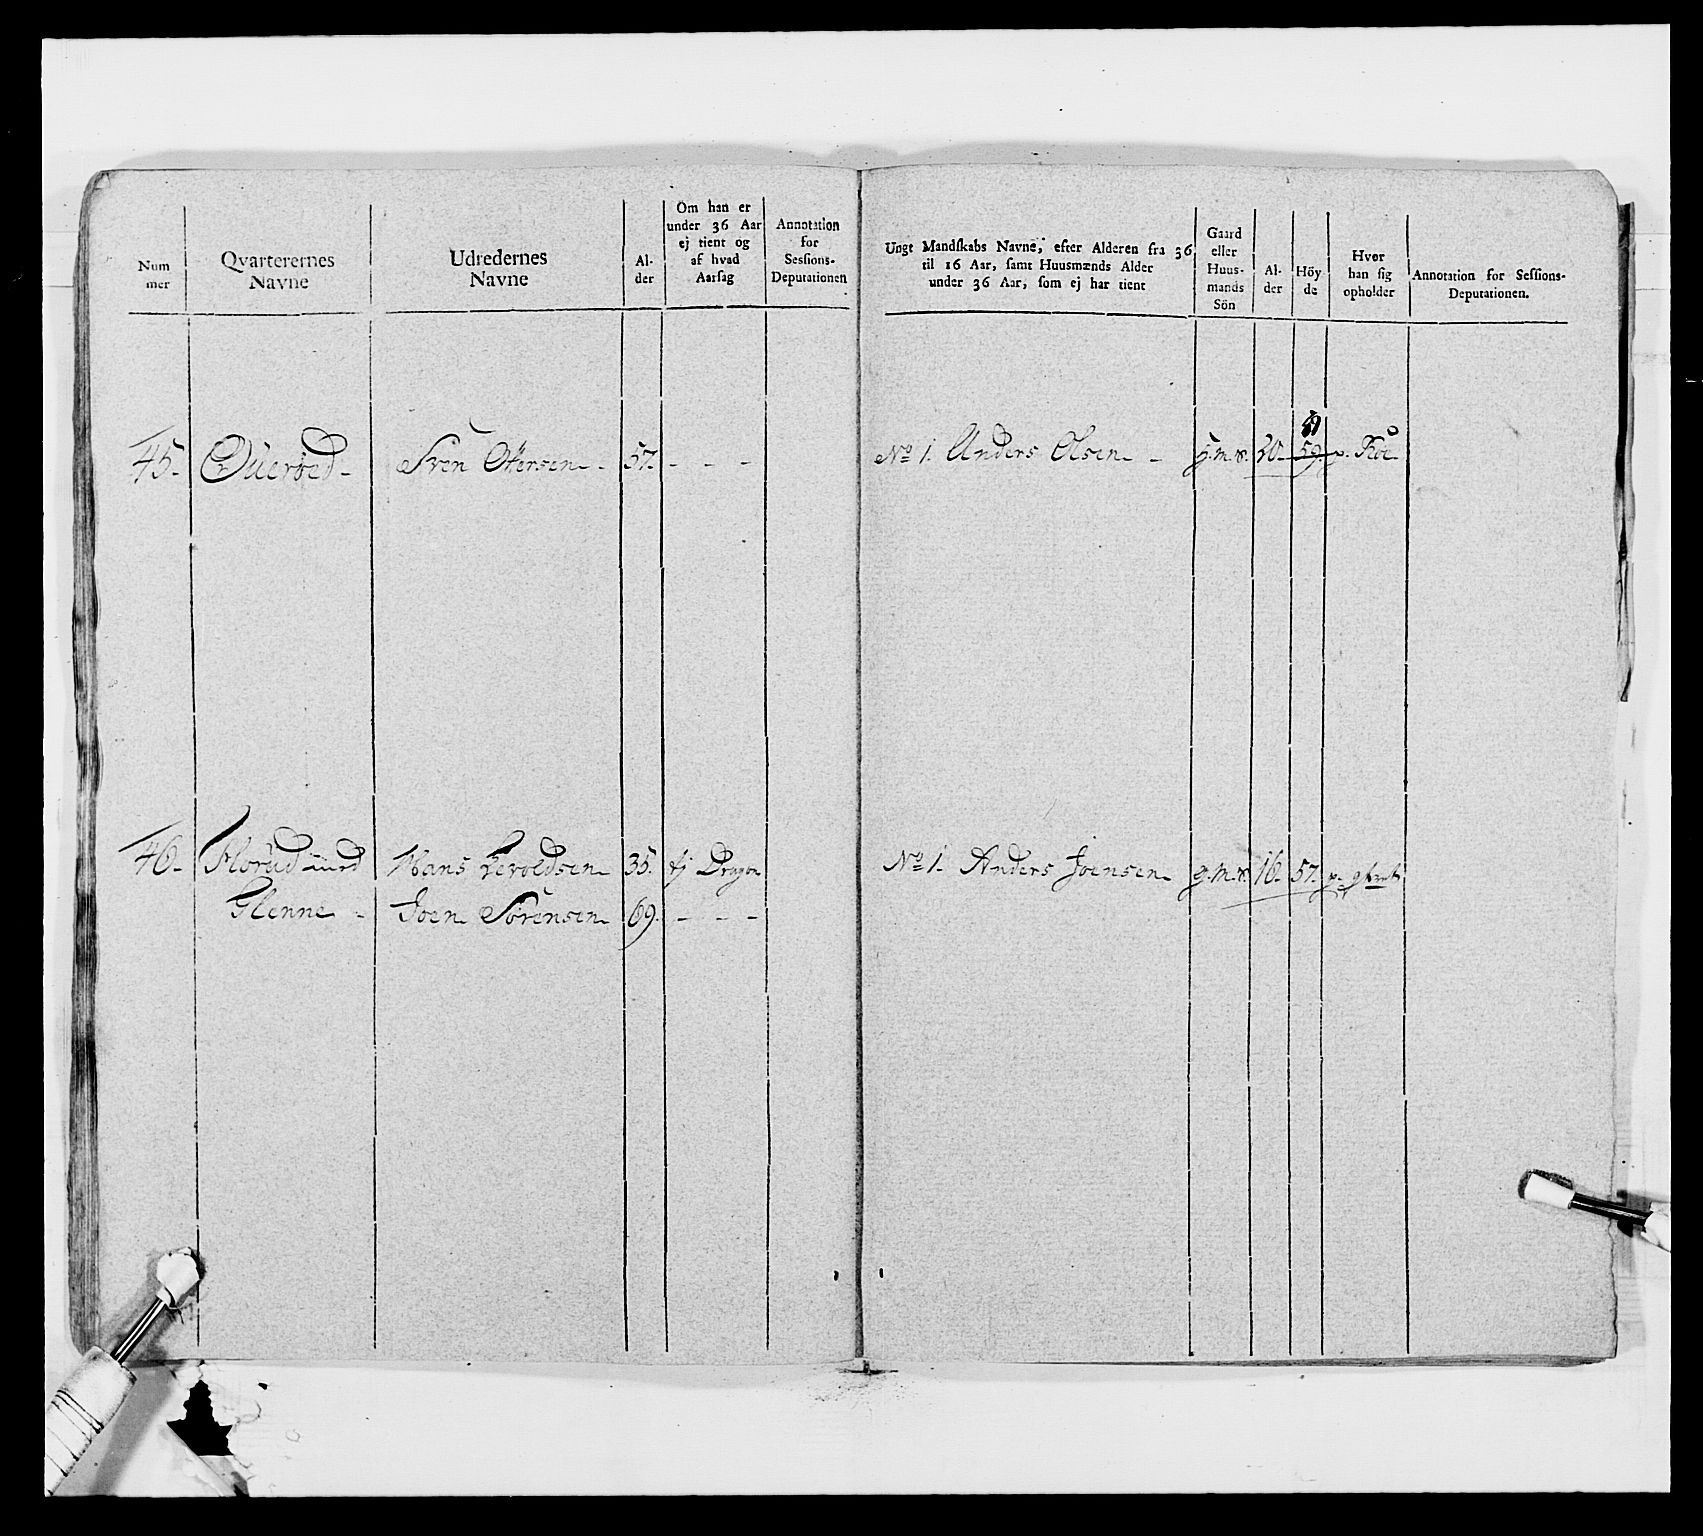 Num
mer
Qvarterernes
Navne
Udredernes
Navne
Al-
der
Om han er
under 36 Aar
ej tient og
af hvad
Aarsag
Annotation
for
Sessions-
Deputationen
Ungt Mandskabs Navne, efter Alderen fra 36
til 16 Aar, samt Huusmænds Alder
under 36 Aar, som ej har tient
Gaard
eller
Huus-
mands
Sön
Al-
der
Höy
de
Hvor
han sig
opholder
Annotation for Sessions-
Deputationen.
45. Sven Ottersen 57. - - -
No 1. Anders Olsen - g.m.s. 20. 59.
46. Florud Hans 35. tj Dragon
Glenne - Joen Sörensen 69. - - -
No 1. Anders Joensen g.m.s. 16. 57.